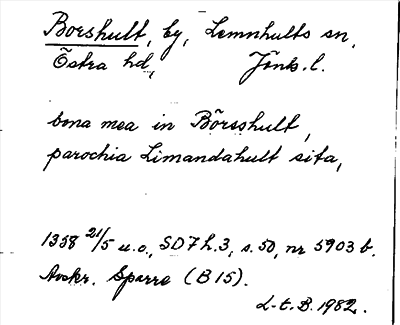 Borshult, by, Lemnhults sn,
Östra hd, Jönk. l.
bona mea in Börsshult,
parochia Limandahult sita,
1358 21/5 u.o., SD 7 h.3, s. 50, nr 5903 b.
Avskr. Sparre (B 15).
L-t. B. 1982.